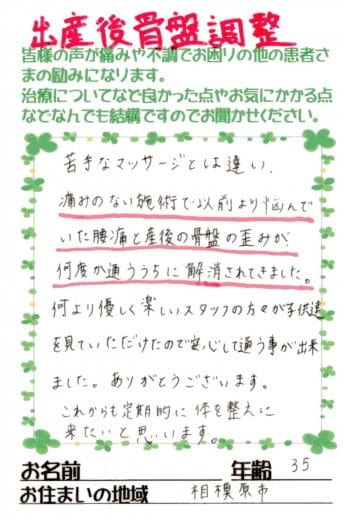 出産後骨盤調整
皆様の声が痛みや不調でお困りの他の患者さ
まの励みになります。
治療についてなど良かった点やお気にかかる点
などなんでも結構ですのでお聞かせください。
苦手なマッサージとは違い、
痛みのない施術で以前より悩んで
いた腰痛と産後の骨盤の歪みが、
何度か通ううちに解消されてきました。
何より優しく楽しいスタッフの方々が子供達
を見ていただけたので安心して通う事が出来
ました。ありがとうございます。
これからも定期的に体を整えに
来たいと思います。
お名前 年齢 35
お住まいの地域 相模原市